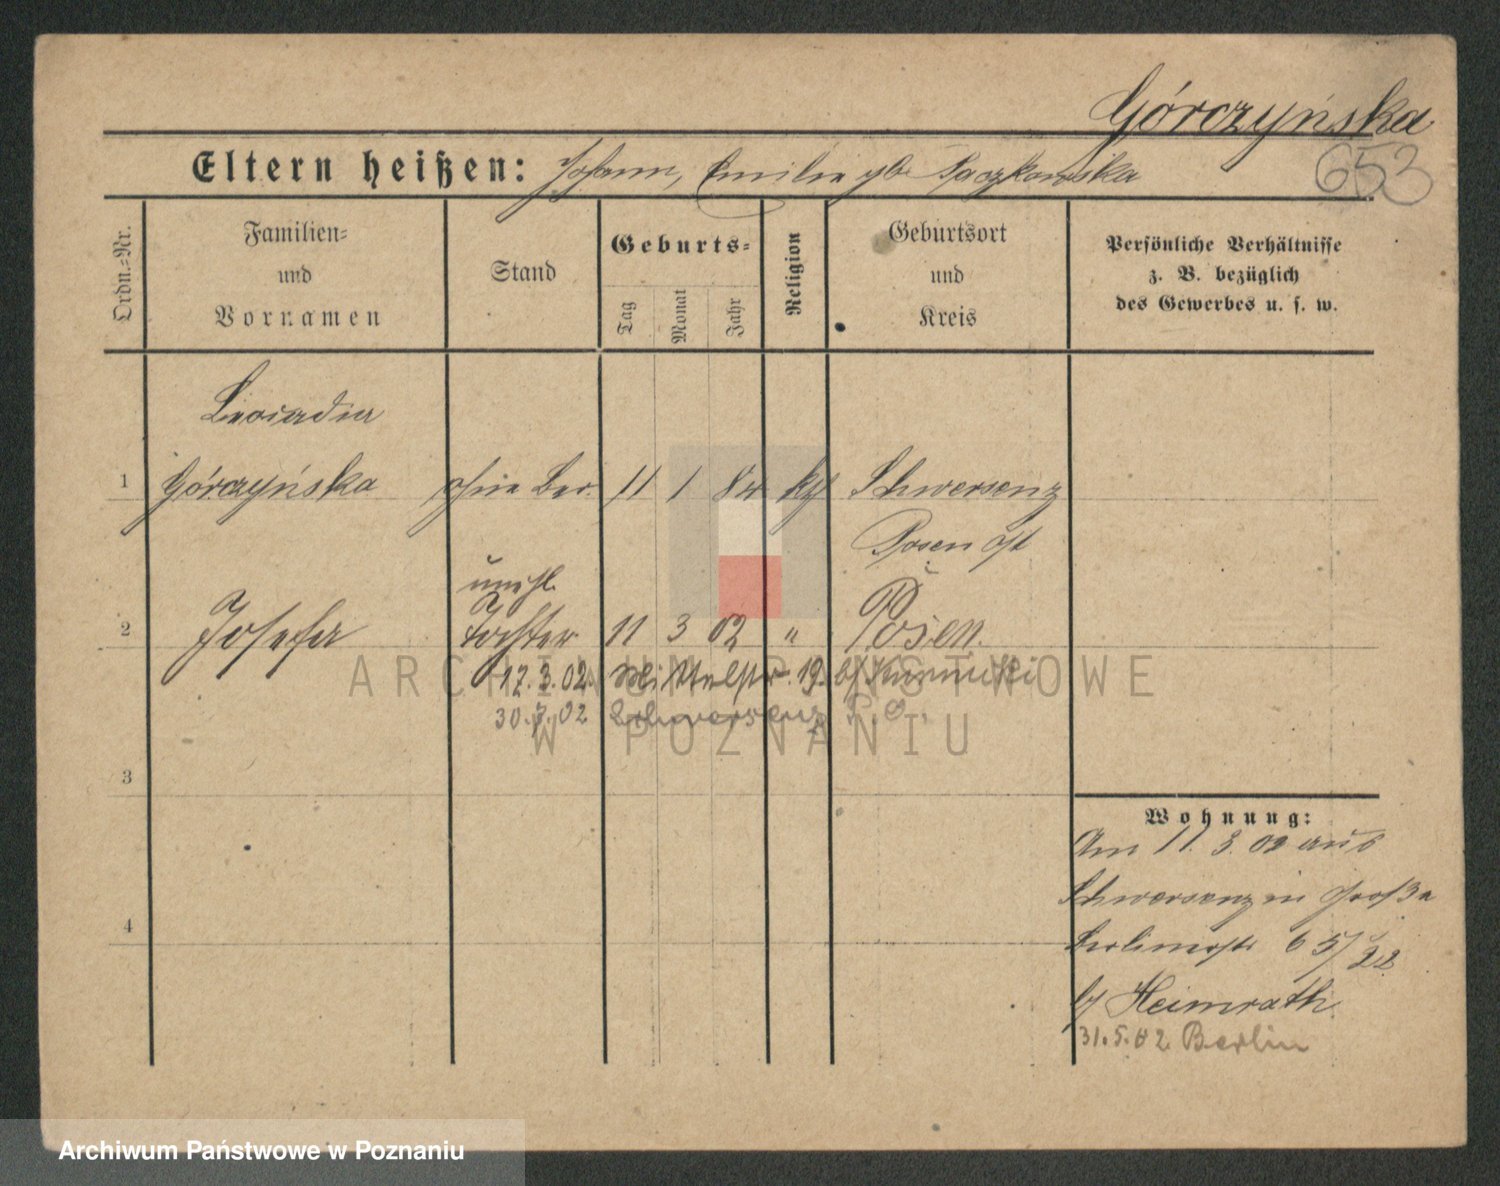 Górczyńska
653
Eltern heißen: Johann, Emilie gb. Paczkowska
Ordn.-Nr.
Familien-
und
Vornamen
Stand
Geburts-
Tag
Monat
Jahr
Religion
Geburtsort
und
Kreis
Persönliche Verhältnisse
z. B. bezüglich
des Gewerbes u. s. w.
Leocadia
1 Górczyńska ohne Ber. 11 1 84 kth Schwersenz
Posen Ost
unehl.
2 Josefa Tochter 11 3 02 " Posen.
17.3.02. 19. b/
30. 02 Schwersenz P. O.
3
4
Wohnung:
Am 11. 3. 02 aus
Schwersenz in Große
Berlinerstr 65/22
b/ Heimrath
31.5.02 Berlin
ARCHIWUM PAŃSTWOWE
W POZNANIU
Archiwum Państwowe w Poznaniu